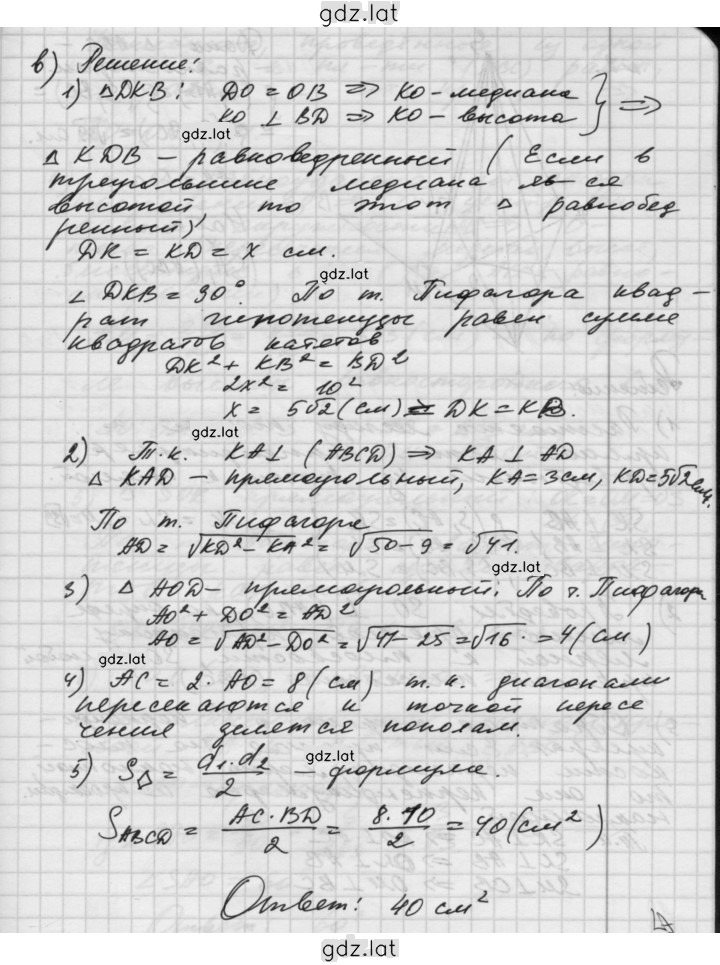 gdz.lat
в) Решение:
1) △DKB: DO = OB ⇒ KO - медиана
KO ⊥ BD ⇒ KO - высота } ⇒
gdz.lat
△ KDB - равнобедренный (Если в
треугольнике медиана яв-ся
высотой то этот △ равнобед
ренный)
gdz.lat
DK = KD = x см.
gdz.lat
∠ DKB = 90°. По т. Пифагора квад-
рат гипотенузы равен сумме
квадратов катетов
gdz.lat
DK² + KB² = BD²
2x² = 10²
x = 5√2 (см) = DK = KB.
gdz.lat
2) Т.к. KA ⊥ (ABCD) ⇒ KA ⊥ AD
△ KAD - прямоугольный, KA = 3 см, KD = 5√2 см.
gdz.lat
По т. Пифагора
AD = √KD² - KA² = √50 - 9 = √41.
gdz.lat
3) △ AOD - прямоугольный. По т. Пифагора
AO² + DO² = AD²
AO = √AD² - DO² = √41 - 25 = √16 = 4 (см)
gdz.lat
4) AC = 2 · AO = 8 (см) т.к. диагонали
пересекаются и точкой пересе
чения делятся пополам.
gdz.lat
5) S△ = d₁·d₂/2 - формула.
S ABCD = AC·BD/2 = 8·10/2 = 40 (см²)
Ответ: 40 см²
gdz.lat